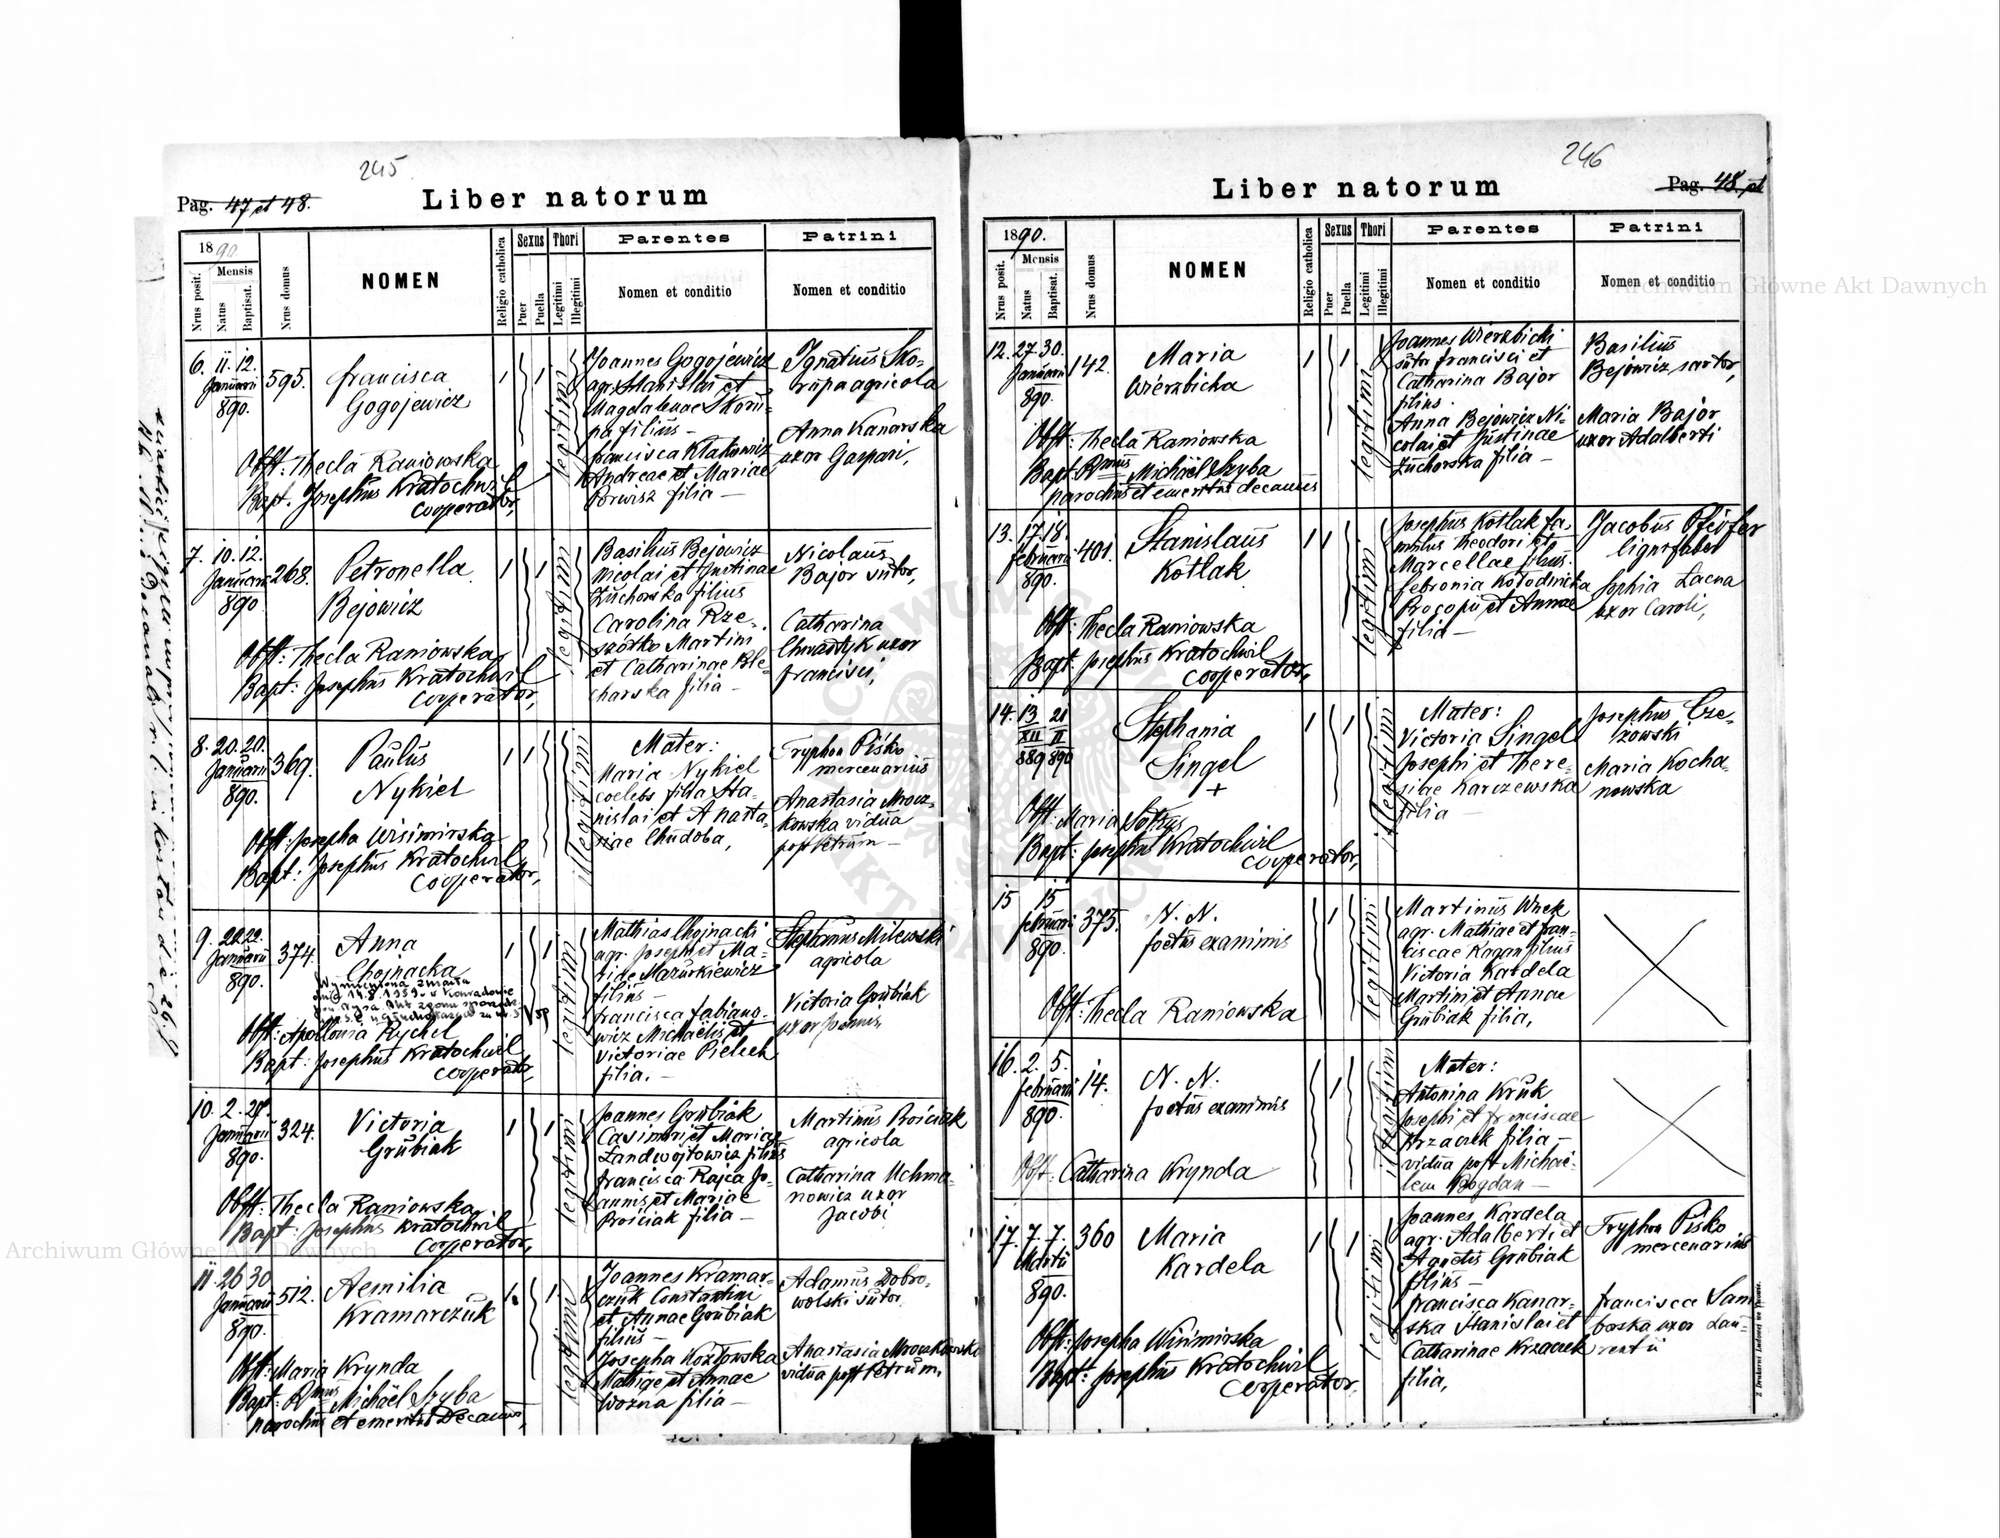 245
Pag. 47 et 48.
Liber natorum
1890
Nrus posit.
Mensis
Natus
Baptisat.
Nrus domus
NOMEN
Religio catholica
Sexus
Puer
Puella
Thori
Legitimi
Illegitimi
Parentes
Nomen et conditio
Patrini
Nomen et conditio
6. 11. 12.
Januarii
890.
595.
Francisca
Gogojewicz
1
1
legitimi
Joannes Gogojewicz
agr. Stanislai et
Magdalenae Skoru-
pa filius —
Francisca Kłakowicz
Andreae et Mariae
filia —
Ignatius Sko-
rupa agricola
Anna Kanarska
uxor Gaspari,
Obst: Thecla Raniowska
Bapt. Josephus Kratochwil
cooperator,
7. 10. 12.
Januarii
890
268.
Petronella
Bejowicz
1
1
legitimi
Basilius Bejowicz
Nicolai et Justinae
Żuchorska filius
Carolina Rze-
szótko Martini
et Catharinae Ble-
charska filia —
Nicolaus
Bajor sutor,
Catharina
Chwastyk uxor
Francisci,
Obst: Thecla Raniowska
Bapt: Josephus Kratochwil
cooperator,
8. 20. 20.
Januarii
890.
369.
Paulus
Nykiel
1
1
illegitimi
Mater:
Maria Nykiel
coelebs filia Sta-
nislai et Anasta-
siae Chudoba,
Tryphon Pisko
mercenarius
Anastasia Mrocz-
kowska vidua
post Petrum —
Obst: Josepha Wisimirska
Bapt: Josephus Kratochwil
cooperator,
9. 22. 22.
Januarii
890.
374.
Anna
Chojnacka
Wymieniona zmarła
dnia 14.8.1959 r. w Konradowie
1
1
legitimi
Mathias Chojnacki
agr. Josephi et Ma-
riae Mazurkiewicz
filius —
Francisca Fabiano-
wicz Michaelis et
Victoriae Pielech
filia. —
Stephanus Milewski
agricola
Victoria Grubiak
uxor Joannis,
Obst: Apollonia Rychel
Bapt: Josephus Kratochwil
cooperator,
10. 2. 28.
Januarii
890.
324.
Victoria
Grubiak
1
1
legitimi
Joannes Grubiak
Casimiri et Mariae
Landwojtowicz filius
Francisca Rajca Jo-
annis et Mariae
Prościak filia —
Martinus Prościak
agricola
Catharina Uchma-
nowicz uxor
Jacobi
Obst: Thecla Raniowska
Bapt: Josephus Kratochwil
cooperator,
11. 26 30
Januarii
890.
512.
Aemilia
Kramarczuk
1.
1.
legitimi
Joannes Kramar-
czuk Constantini
et Annae Grubiak
filius —
Josepha Kozłowska
et Annae
Wozna filia —
Adamus Dobro-
wolski sutor
Anastasia Mroczkowska
vidua post Petrum.
Obst: Maria Krynda
Bapt: Rmus Michaël Szyba
parochus et emeritus Decanus,
246
Liber natorum
Pag. 48 et
1890.
Nrus posit.
Mensis
Natus
Baptisat.
Nrus domus
NOMEN
Religio catholica
Sexus
Puer
Puella
Thori
Legitimi
Illegitimi
Parentes
Nomen et conditio
Patrini
Nomen et conditio
12. 27. 30.
Januarii
890.
142.
Maria
Wierzbicka
1
1
legitimi
Joannes Wierzbicki
sutor Francisci et
Catharina Bajor
filius.
Anna Bejowicz Ni-
colai et Justinae
Żuchorska filia —
Basilius
Bejowicz sartor,
Maria Bajor
uxor Adalberti
Obst: Thecla Raniowska
Bapt. Rmus Michaël Szyba
parochus et emeritus decanus
13. 17. 18.
Februarii
890.
401.
Stanislaus
Kotlak
1
1
legitimi
Josephus Kotlak fa-
mulus Theodori et
Marcellae filius.
Febronia Kołodnicka
Procopii et Annae
filia —
Jacobus Pfeifer
lignifaber
Sophia Łacna
uxor Caroli,
Obst: Thecla Raniowska
Bapt: Josephus Kratochwil
cooperator,
14. 13 21
XII II
889 890
Stephania
Singel
+
1
1
illegitimi
Mater:
Victoria Singel
Josephi et There-
siae Karczewska
filia —
Josephus Cze-
żowski
Maria Kocha-
nowska
Obst: Maria
Bapt: Josephus Kratochwil
cooperator,
15 15
Februarii
890.
375.
N. N.
foetus exanimis
1
legitimi
Martinus Wnek
agr. Mathiae et Fran-
ciscae Kagan filius
Victoria Kardela
Martini et Annae
Grubiak filia,
Obst: Thecla Raniowska
16. 2. 5.
Februarii
890.
14.
N. N.
foetus exanimis
1
illegitimi
Mater:
Antonina Kruk
Josephi et Franciscae
Krzaczek filia —
vidua post Michaë-
lem Bogdan —
Obst: Catharina Krynda
17. 7. 7.
Martii
890.
360
Maria
Kardela
1
1
legitimi
Joannes Kardela
agr. Adalberti et
Agnetis Grubiak
filius —
Francisca Kanar-
ska Stanislai et
Catharinae Krzaczek
filia,
Tryphon Pisko
mercenarius
Francisca Sam
borska uxor Lau-
rentii
Obst: Josepha Wisimirska
Bapt: Josephus Kratochwil
cooperator.
Archiwum Główne Akt Dawnych
Archiwum Główne Akt Dawnych